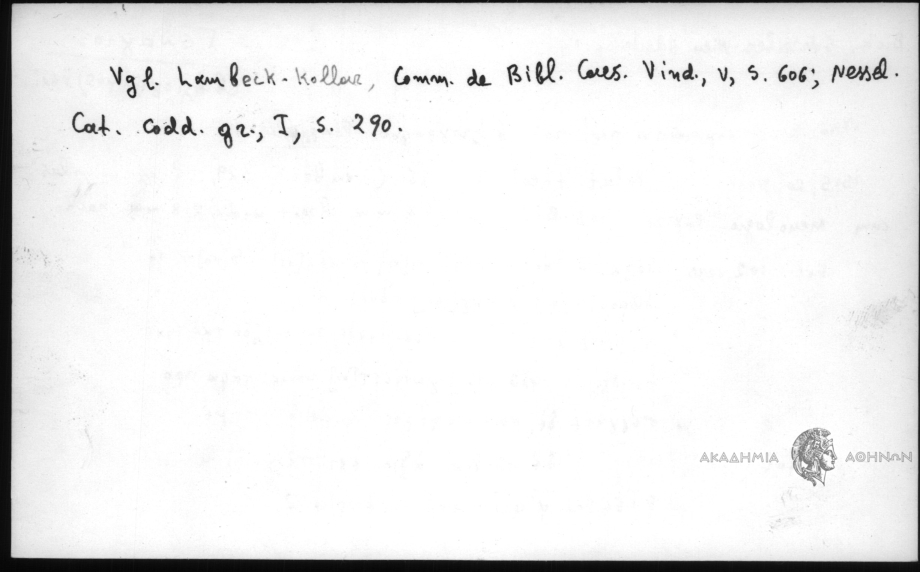 Vgl. Lambeck-Kollar, Comm. de Bibl. Caes. Vind., V, S. 606; Nessel.
Cat. Codd. gr., I, S. 290.
ΑΚΑΔΗΜΙΑ ΑΘΗΝΩΝ